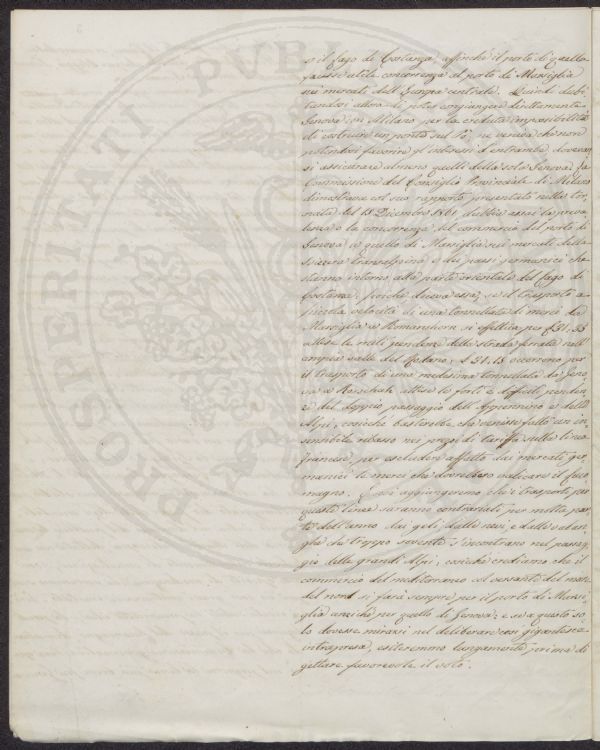 o il Lago di Costanza, affinché il porto di quella
facesse utile concorrenza al porto di Marsiglia
sui mercati dell'Europa centrale. Quindi dubi-
tandosi allora di poter congiungere direttamente
Genova con Milano per la creduta impossibilità
di costruire un ponte sul Po, ne veniva che non
potendosi favorire gl'interessi d'entrambe, dovevan-
si assicurare almeno quelli della sola Genova. La
Commissione del Consiglio Provinciale di Milano
dimostrava col suo rapporto presentato nella tor-
nata del 13 Dicembre 1861 dubbia assai la preva-
lenza o la concorrenza del commercio del porto di
Genova a quello di Marsiglia sui mercati della
Svizzera transalpina e dei paesi germanici che
stanno intorno alla parte orientale del lago di
Costanza; poiché diceva essa, se il trasporto a
piccola velocità di una tonnellata di merci da
Marsiglia a Romanshorn si effettua per £ 31. 33
attese le miti pendenze della strada ferrata nell'
ampia valle del Rodano, £ 31. 13 occorrono per
il trasporto di una medesima tonnellata da Geno-
va a Rorschach attese le forti e difficili penden-
ze del doppio passaggio dell'Appennino e delle
Alpi, cosicché basterebbe che venisse fatto un in-
sensibile ribasso nei prezzi di tariffa sulla linea
francese, per escludere affatto dai mercati ger-
manici le merci che dovrebbero valicare il Luc-
magno. E qui aggiungeremo che i trasporti per
queste linee saranno contrariati per molta par-
te dell'anno dai geli, dalle nevi, e dalle valan-
ghe che troppo sovente s'incontrano nel passag-
gio delle grandi Alpi; cosicché crediamo che il
commercio del mediterraneo col versante del mare
del nord si farà sempre per il porto di Marsi-
glia anziché per quello di Genova: e se a questo so-
lo dovesse mirarsi nel deliberare così gigantesca
intrapresa, esiteremmo lungamente prima di
gettare favorevole il voto.
PROSPERITATI PUBLI